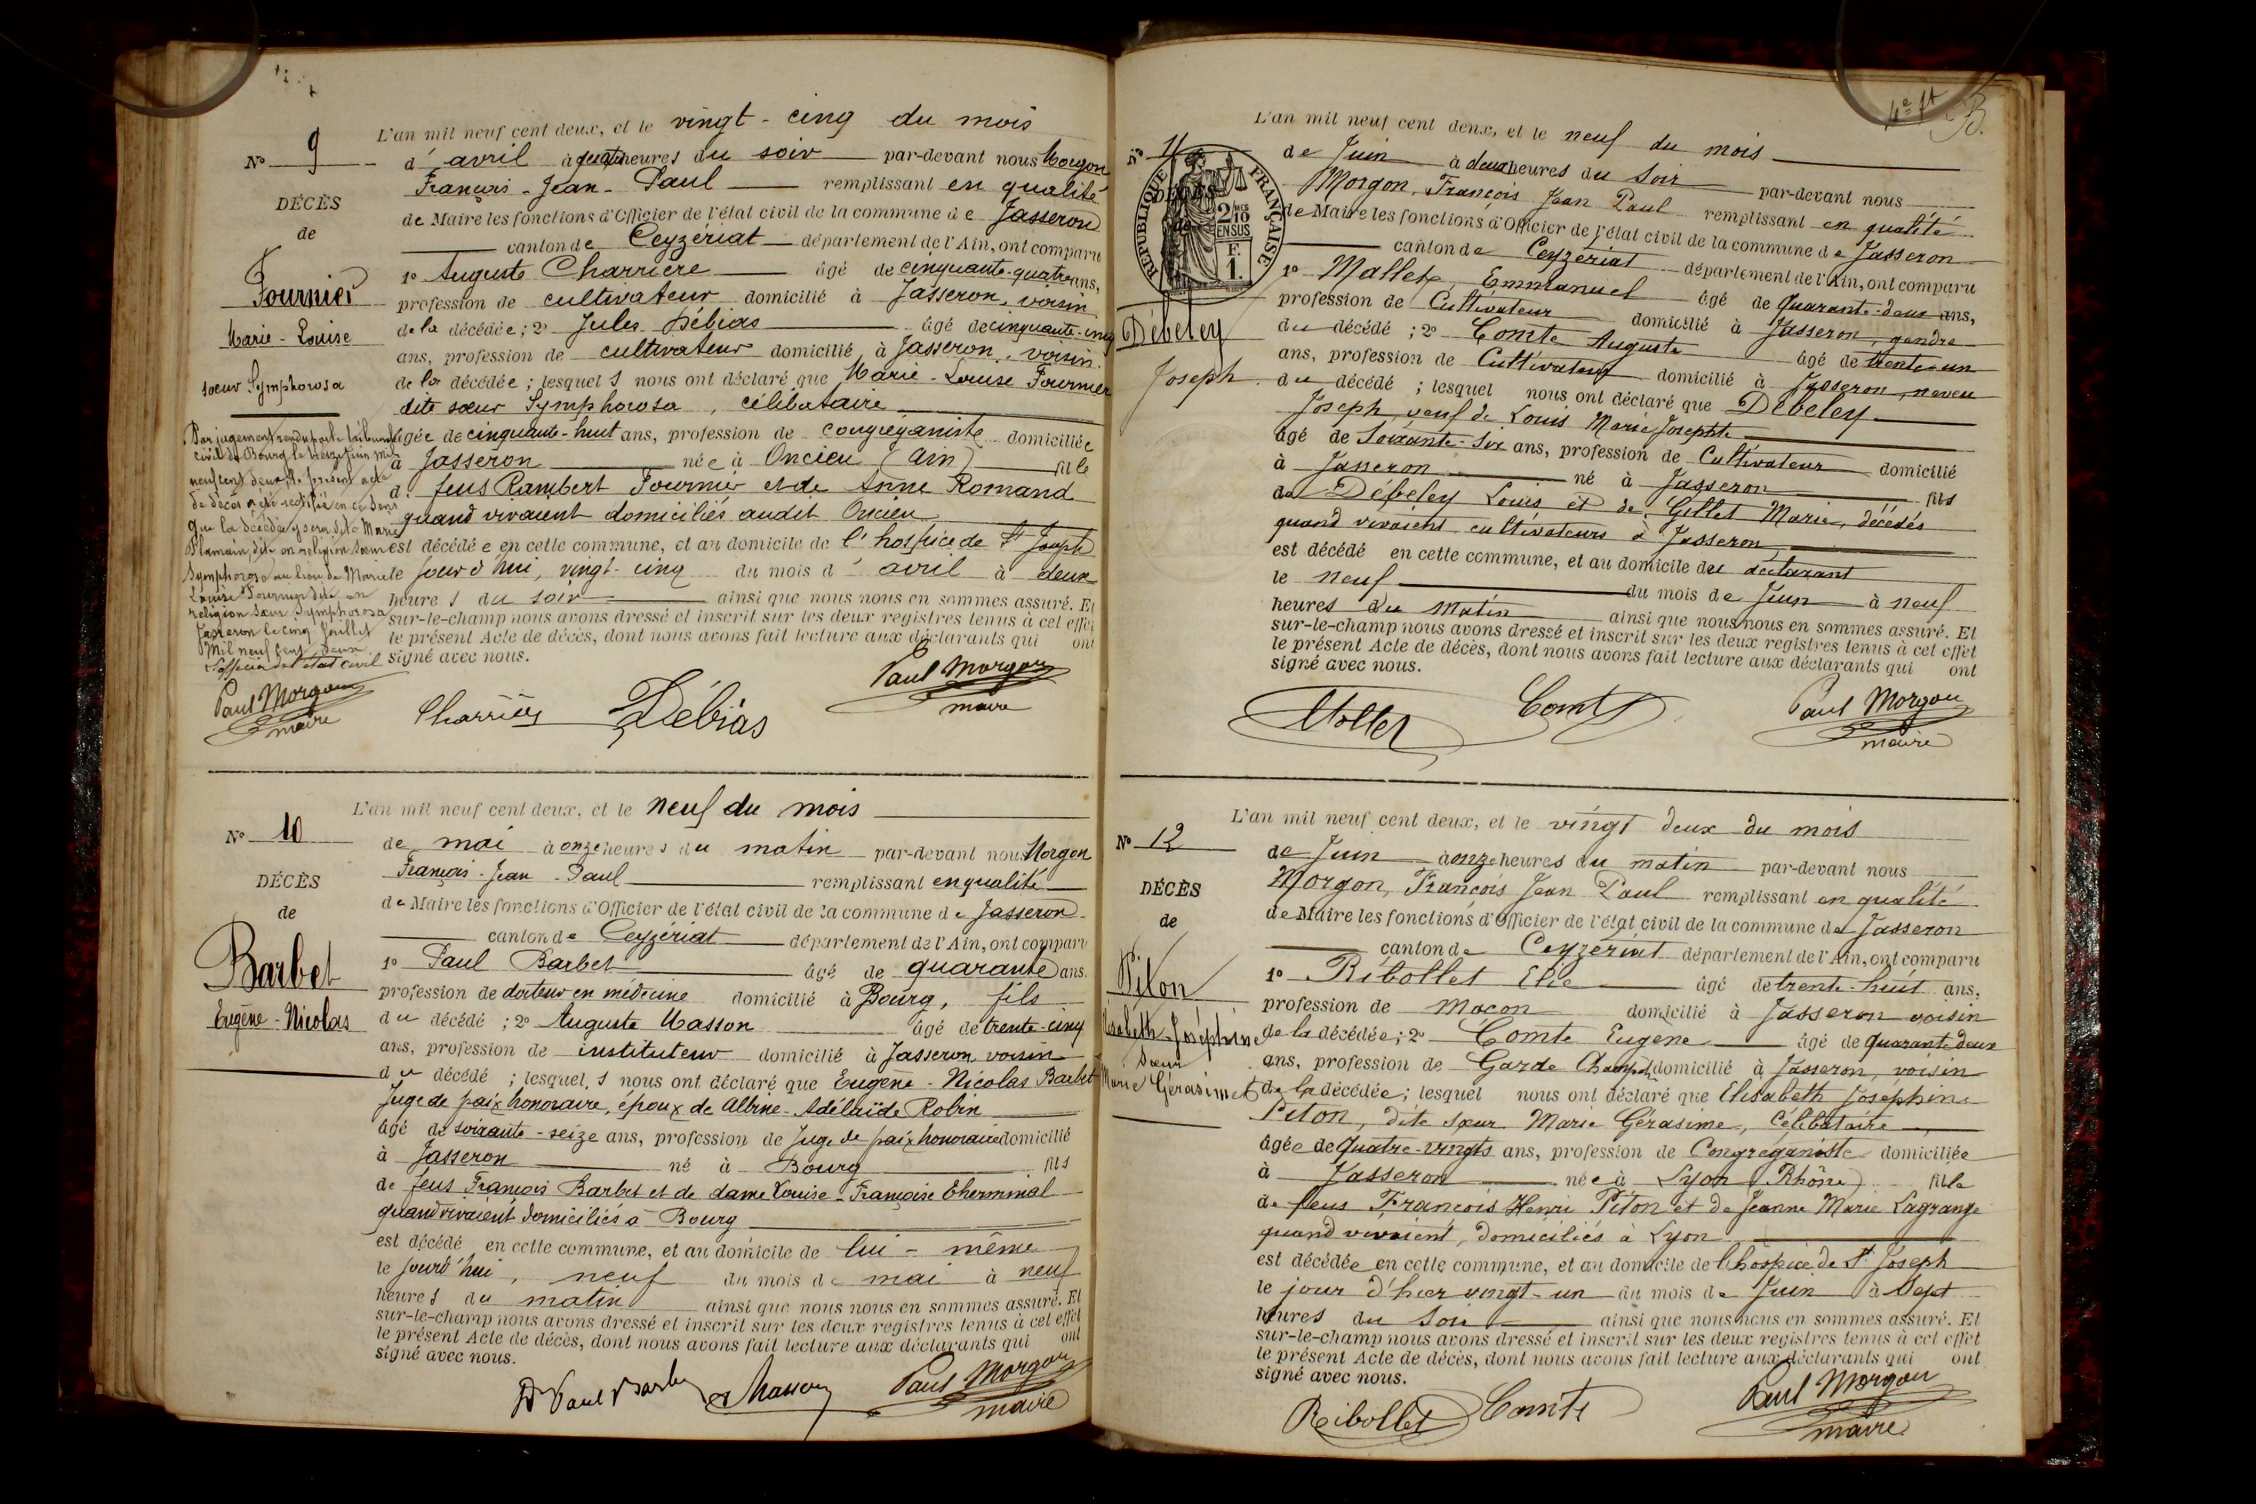 N° 9
DÉCÈS
de
Fournier
Marie-Louise
soeur Symphorosa
Par jugement rendu par le tribunal
civil de Bourg le treize juin mil
neuf cent deux, le présent acte
de décès a été rectifié en ce sens
que la décédée y sera dite Marie
Plamain, dite en religion soeur
Symphorosa au lieu de Marie
Louise Fournier dite en
religion Soeur Symphorosa
Jasseron le cinq Juillet
Mil neuf cent deux
L'officier de l'état civil
Paul Morgon
maire
L'an mil neuf cent deux, et le vingt-cinq du mois
d'avril à quatre heures du soir par-devant nous Morgon
François-Jean-Paul remplissant en qualité
de Maire les fonctions d'Officier de l'état civil de la commune de Jasseron
canton de Ceyzériat département de l'Ain, ont comparu
1° Auguste Charrière âgé de cinquante-quatre ans,
profession de cultivateur domicilié à Jasseron, voisin
de la décédée; 2° Jules Débias âgé de cinquante-cinq
ans, profession de cultivateur domicilié à Jasseron, voisin
de la décédée; lesquels nous ont déclaré que Marie-Louise Fournier
dite soeur Symphorosa, célibataire
âgée de cinquante-huit ans, profession de congréganiste domiciliée
à Jasseron née à Oncieu (Ain) fille
de feus Rambert Fournier et de Anne Romand
quand vivaient domiciliés audit Oncieu
est décédée en cette commune, et au domicile de l'hospice de St Joseph
le jourd'hui, vingt-cinq du mois d'avril à deux
heures du soir ainsi que nous nous en sommes assuré. Et
sur-le-champ nous avons dressé et inscrit sur les deux registres tenus à cet effet
le présent Acte de décès, dont nous avons fait lecture aux déclarants qui ont
signé avec nous.
Charrière Débias Paul Morgon
maire
N° 10
DÉCÈS
de
Barbet
Eugène-Nicolas
L'an mil neuf cent deux, et le neuf du mois
de mai à onze heures du matin par-devant nous Morgon
François-Jean-Paul remplissant en qualité
de Maire les fonctions d'Officier de l'état civil de la commune de Jasseron
canton de Ceyzériat département de l'Ain, ont comparu
1° Paul Barbet âgé de quarante ans.
profession de docteur en médecine domicilié à Bourg, fils
du décédé; 2° Auguste Masson âgé de trente-cinq
ans, profession de instituteur domicilié à Jasseron voisin
du décédé; lesquels nous ont déclaré que Eugène-Nicolas Barbet
Juge de paix honoraire, époux de Albine-Adélaïde Robin
âgé de soixante-seize ans, profession de Juge de paix honoraire domicilié
à Jasseron né à Bourg fils
de feus François Barbet et de dame Louise-Françoise Cherminal
quand vivaient domiciliés à Bourg
est décédé en cette commune, et au domicile de lui-même
le jourd'hui, neuf du mois de mai à neuf
heures du matin ainsi que nous nous en sommes assuré. Et
sur-le-champ nous avons dressé et inscrit sur les deux registres tenus à cet effet
le présent Acte de décès, dont nous avons fait lecture aux déclarants qui ont
signé avec nous.
Dr Paul Barbet Masson Paul Morgon
maire
4e ft B.
N° 11
DÉCÈS
de
RÉPUBLIQUE FRANÇAISE
2/10 MES
EN SUS
F.
1.
Débeley
Joseph
L'an mil neuf cent deux, et le neuf du mois
de Juin à deux heures du Soir par-devant nous
Morgon, François Jean Paul remplissant en qualité
de Maire les fonctions d'Officier de l'état civil de la commune de Jasseron
canton de Ceyzériat département de l'Ain, ont comparu
1° Mallet, Emmanuel âgé de Quarante-deux ans,
profession de Cultivateur domicilié à Jasseron, gendre
du décédé; 2° Comte Auguste âgé de trente-un
ans, profession de Cultivateur domicilié à Jasseron, neveu
du décédé; lesquel nous ont déclaré que Débeley
Joseph, veuf de Louis Marie Josephte
âgé de Soixante-Six ans, profession de Cultivateur domicilié
à Jasseron né à Jasseron fils
de Débeley Louis et de Gillet Marie, décédés
quand vivaient cultivateurs à Jasseron,
est décédé en cette commune, et au domicile du déclarant
le neuf du mois de Juin à neuf
heures du Matin ainsi que nous nous en sommes assuré. Et
sur-le-champ nous avons dressé et inscrit sur les deux registres tenus à cet effet
le présent Acte de décès, dont nous avons fait lecture aux déclarants qui ont
signé avec nous.
Mallet Comte Paul Morgon
maire
N° 12
DÉCÈS
de
Piton
Elisabeth-Joséphine
Soeur
Marie Gérasime
L'an mil neuf cent deux, et le vingt deux du mois
de Juin à onze heures du matin par-devant nous
Morgon, François Jean Paul remplissant en qualité
de Maire les fonctions d'Officier de l'état civil de la commune de Jasseron
canton de Ceyzériat département de l'Ain, ont comparu
1° Ribollet Elie âgé de trente-huit ans,
profession de Maçon domicilié à Jasseron voisin
de la décédée; 2° Comte Eugène âgé de quarante deux
ans, profession de Garde Champêtre domicilié à Jasseron, voisin
de la décédée; lesquel nous ont déclaré que Elisabeth Joséphine
Piton, dite soeur Marie Gérasime, Célibataire
âgée de Quatre-vingts ans, profession de Congréganiste domiciliée
à Jasseron née à Lyon (Rhône) fille
de feus François Henri Piton et de Jeanne Marie Lagrange
quand vivaient, domiciliés à Lyon
est décédée en cette commune, et au domicile de l'hospice de St Joseph
le jour d'hier vingt-un du mois de Juin à Sept
heures du Soir ainsi que nous nous en sommes assuré. Et
sur-le-champ nous avons dressé et inscrit sur les deux registres tenus à cet effet
le présent Acte de décès, dont nous avons fait lecture aux déclarants qui ont
signé avec nous.
Ribollet Comte Paul Morgon
maire